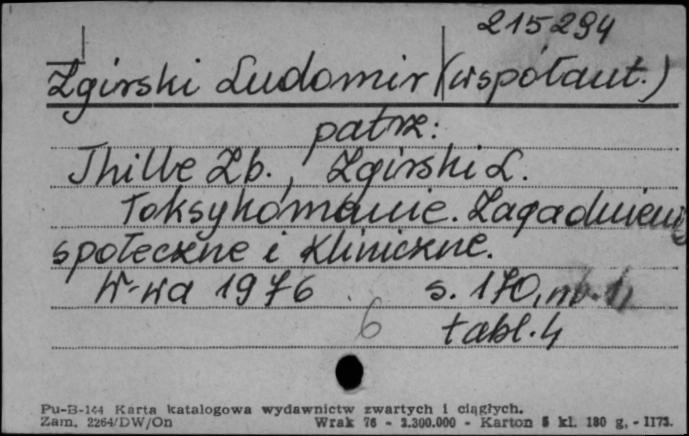 215294
Zgirski Ludomir (współaut.)
patrz:
Thille Zb., Zgirski L.
Toksykomanie. Zagadnienia
społeczne i kliniczne.
W-wa 1976 s. 170, nb. 1,
6 tabl. 4
Pu-B-144 Karta katalogowa wydawnictw zwartych i ciągłych.
Zam. 2264/DW/On Wrak 76 - 2.300.000 - Karton 5 kl. 180 g. - 1173.